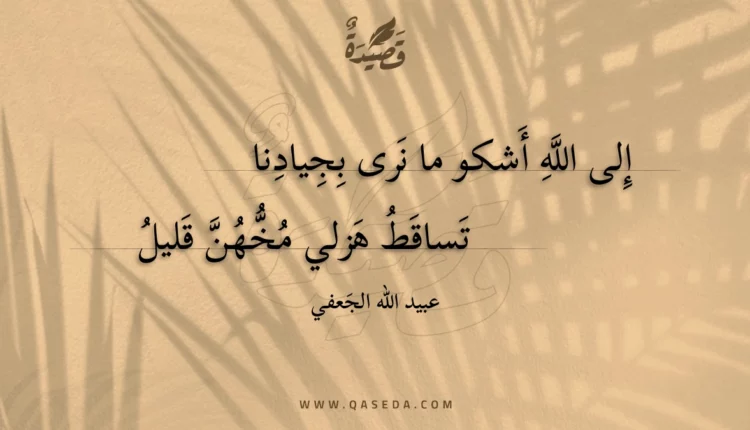 قَصِيدَةٌ
إِلى اللَّهِ أَشكو ما نَرى بِجِيادِنا
تَساقَطُ هَزلي مُخُّهُنَّ قَليلُ
عبيد الله الجَعفي
WWW.QASEDA.COM